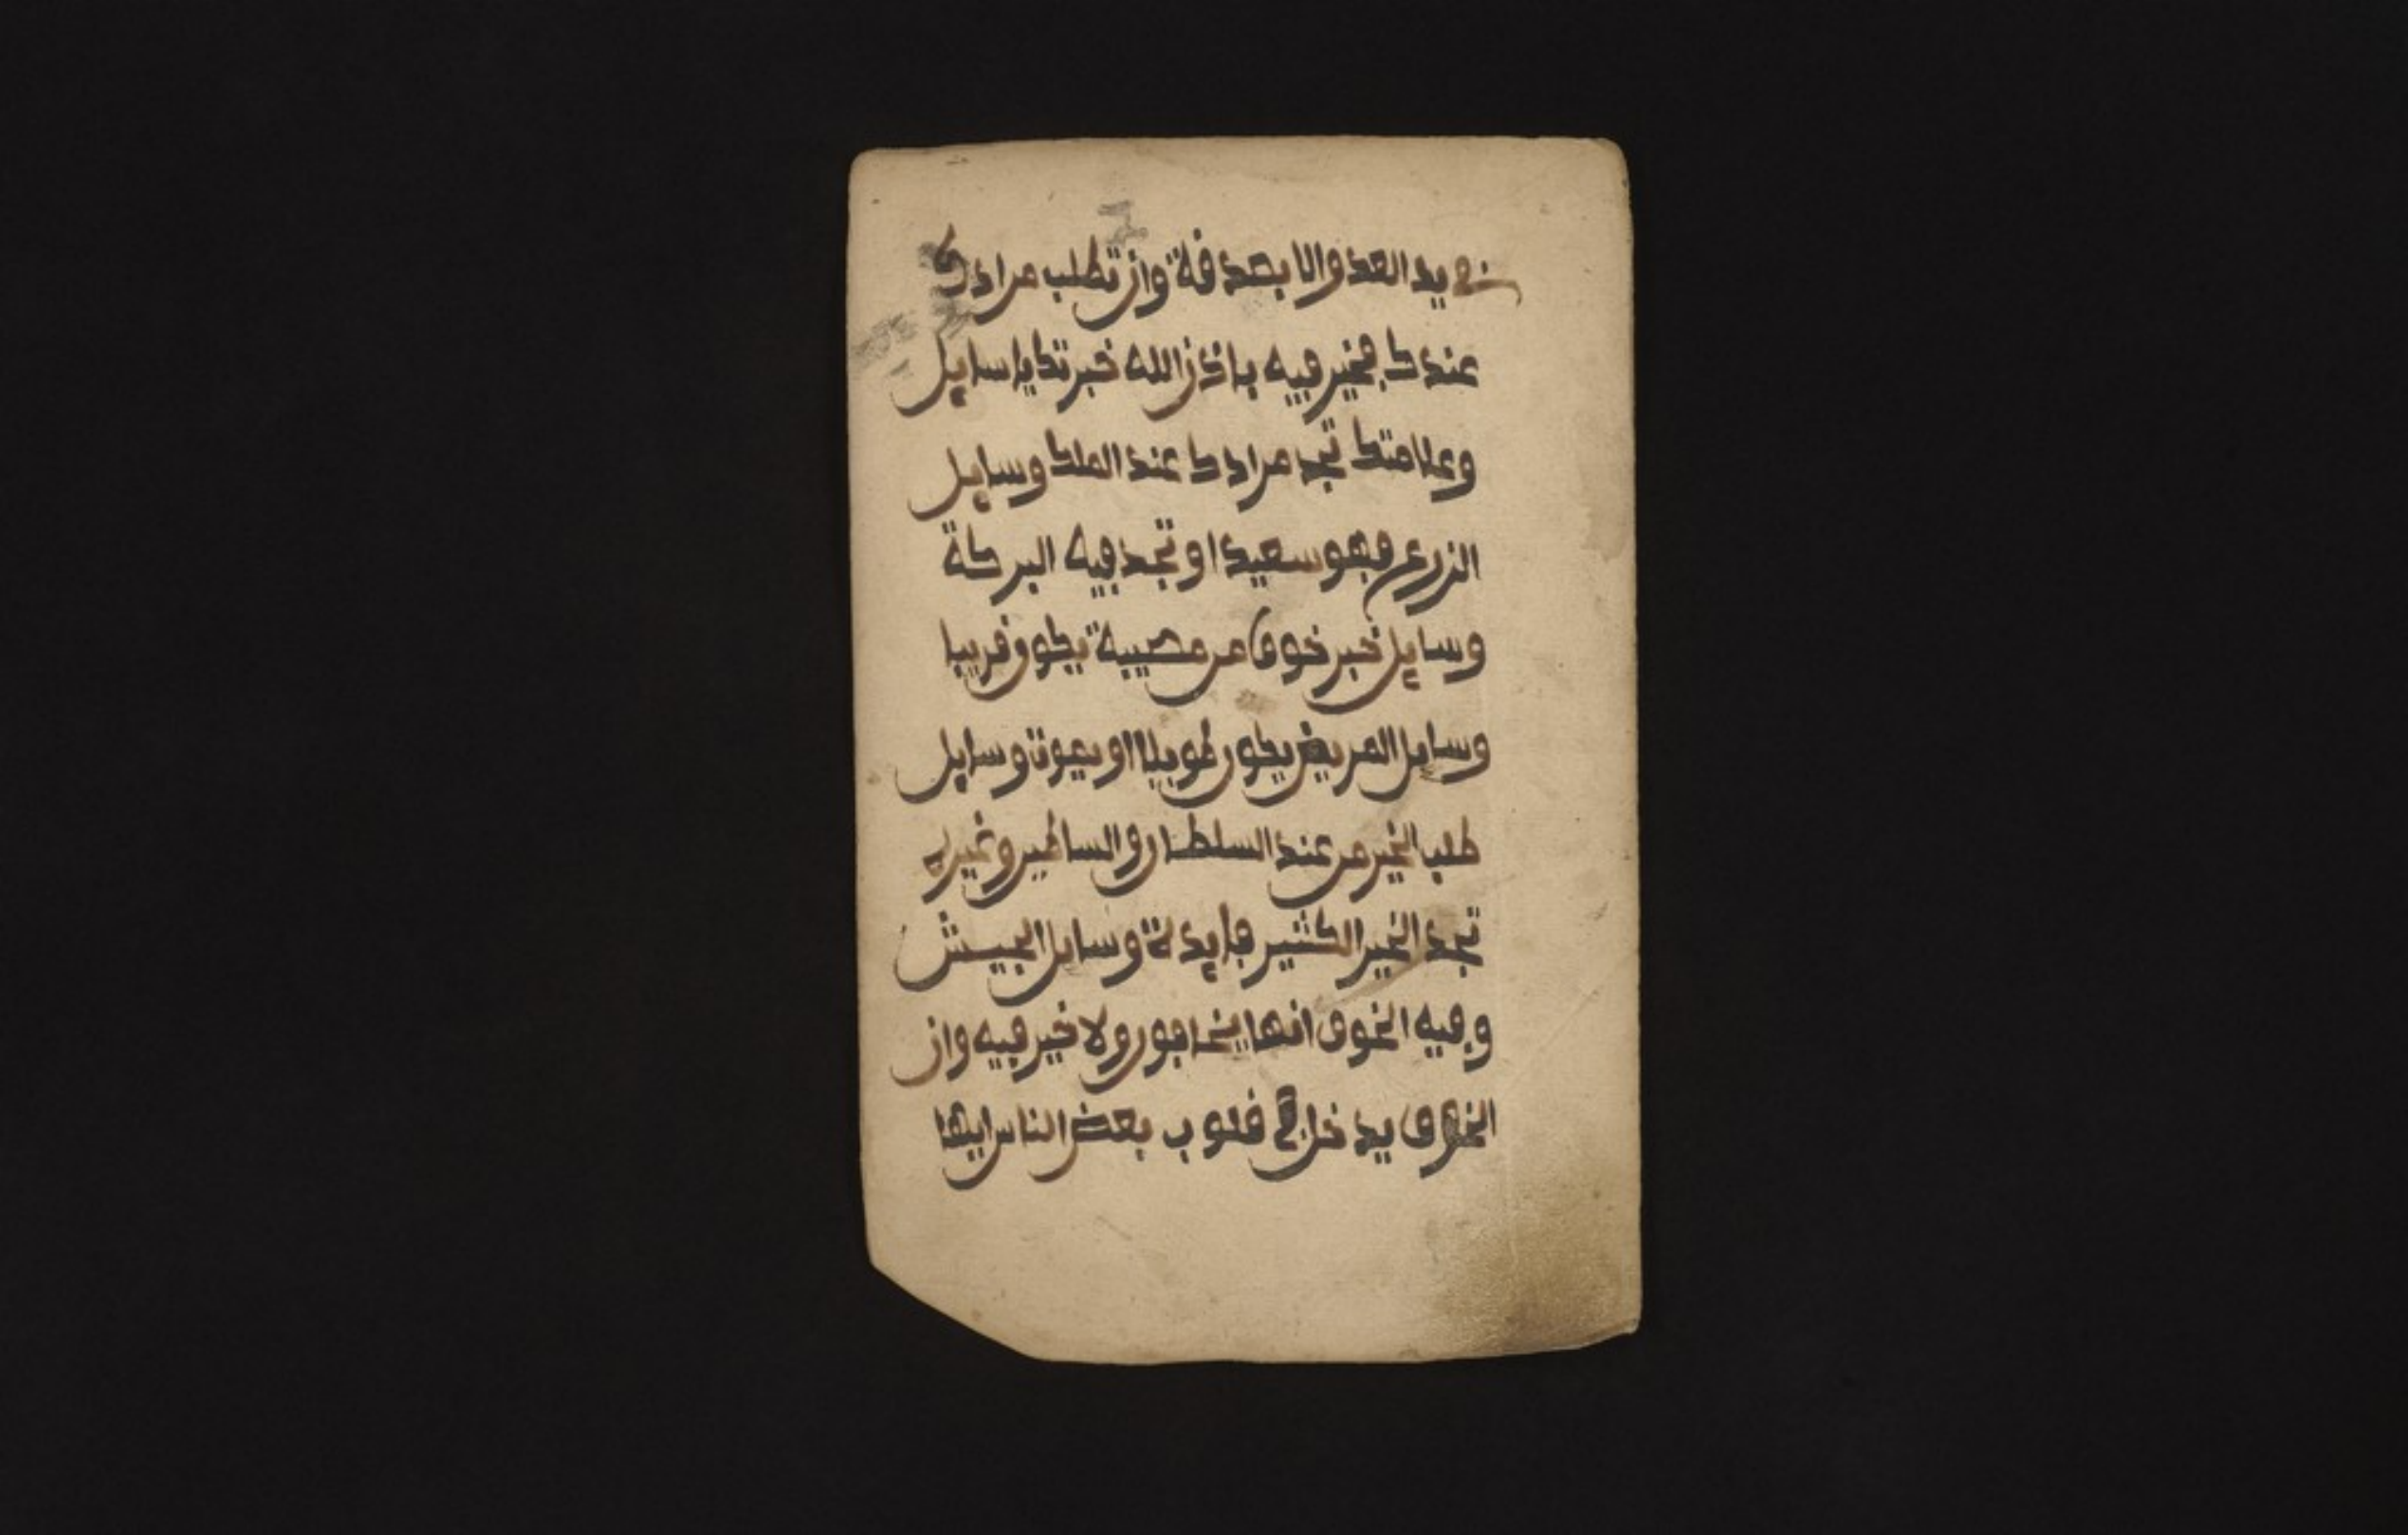 في يد العدو الا بصدقة وان تطلب مرادك
عندك فخير فيه باذن الله خبرتك يا سايل
وعلامتك تجد مرادك عند الملك وسايل
الزرع فهو سعيدا وتجد فيه البركة
وسايل خبر خوف من مصيبة يكون قريبا
وسايل المريض يكون طويلا او يموت وسايل
طلب الخير من عند السلطان والساطين وغيره
تجد الخير الكثير فايدة وسايل الجيش
وفيه الخوف انها يخافون ولا خير فيه وان
الخوف يدخل في قلوب بعض الناس ايها